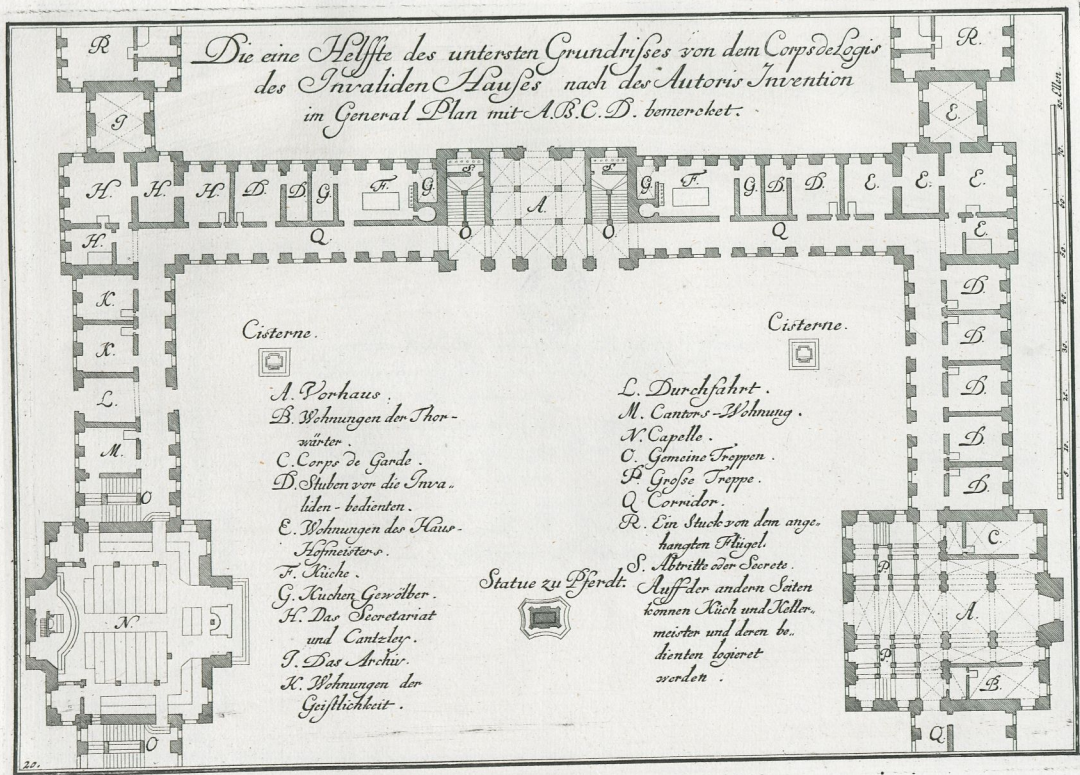 Die eine Helffte des untersten Grundrisses von dem Corps de Logis
des Invaliden Hauses nach des Autoris Invention
im General Plan mit A.B.C.D. bemercket.
R
R.
J
E.
H.
H.
H.
D.
D.
G.
F.
G.
S.
A.
S.
G.
F.
G.
D.
D.
E.
E.
E.
H.
Q
O
O
Q
E.
K.
K.
L.
M.
O
N.
O
D.
D.
D.
D.
D.
C.
P.
A.
P.
B.
Q.
Cisterne.
Cisterne.
A. Vorhaus.
B. Wohnungen der Thor-
wärter.
C. Corps de Garde.
D. Stuben vor die Inva-
liden-bedienten.
E. Wohnungen des Haus-
Hofmeisters.
F. Küche.
G. Kuchen Gewölber.
H. Das Secretariat
und Cantzley.
J. Das Archiv.
K. Wohnungen der
Geistlichkeit.
L. Durchfahrt.
M. Cantors-Wohnung.
N. Capelle.
O. Gemeine Treppen.
P. Grosse Treppe.
Q. Corridor.
R. Ein Stuck von dem ange-
hangten Flügel.
S. Abtritte oder Secrete.
Auff der andern Seiten
können Küch und Keller-
meister und deren be-
dienten logieret
werden.
Statue zu Pferdt.
Ellen.
20.